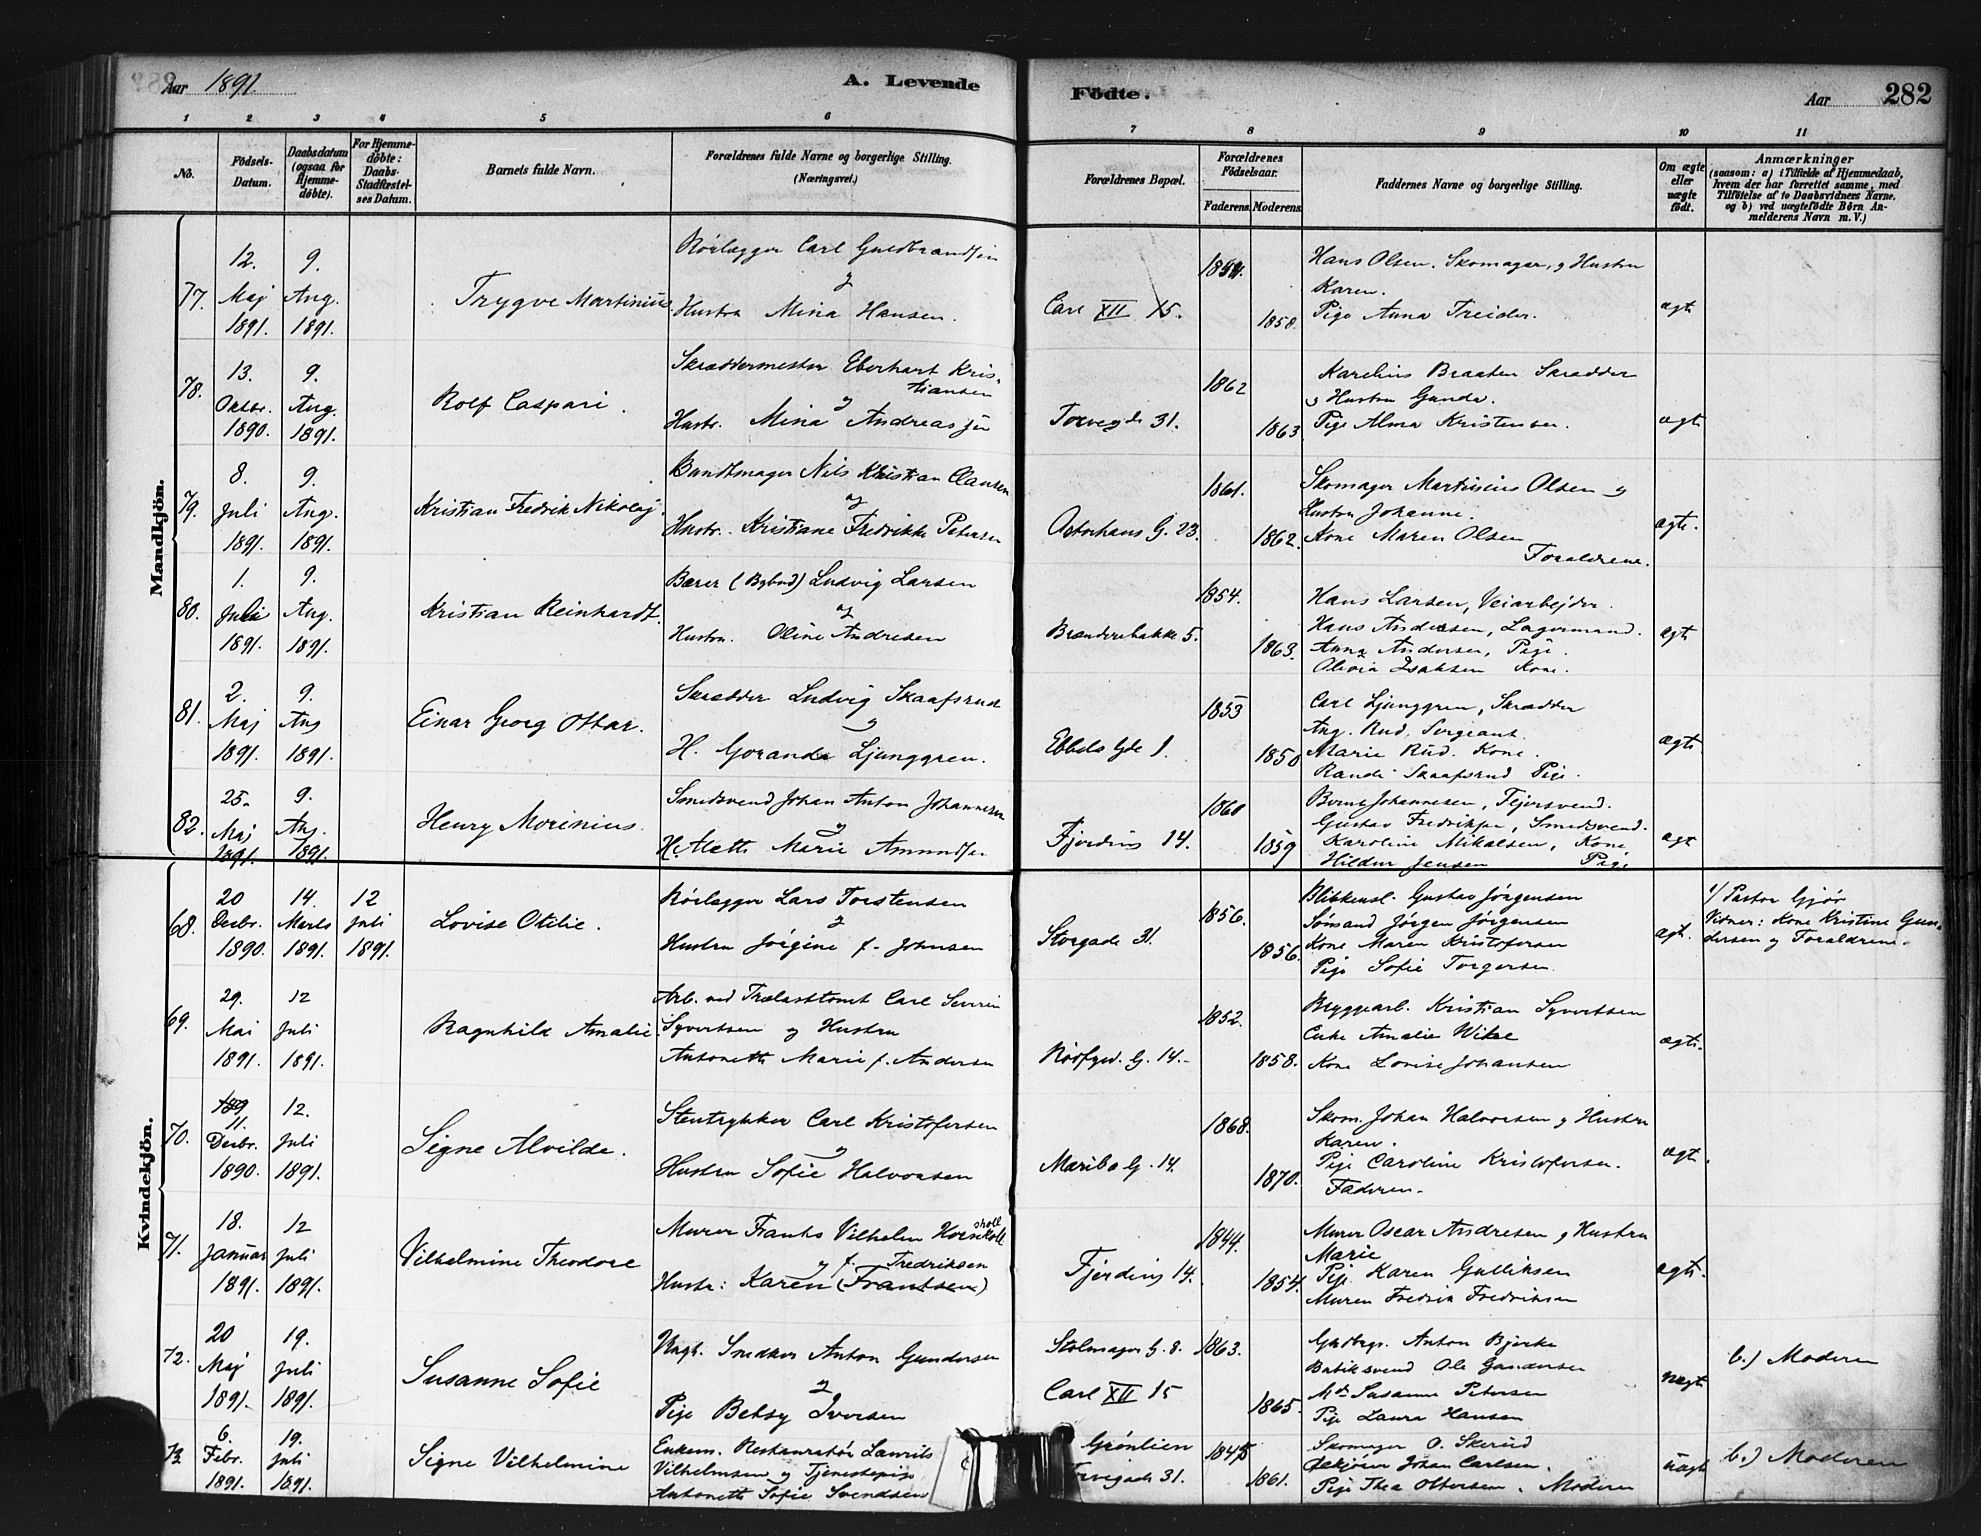 Aar 1891.
A. Levende
Födte.
Aar 282
1 2 3 4 5 6 7 8 9 10 11
No.
Födsels-
Datum.
Daabsdatum
(ogsaa for
Hjemme-
döbte).
For Hjemme-
döbte:
Daabs-
Stadfæstel-
ses Datum.
Barnets fulde Navn.
Forældrenes fulde Navne og borgerlige Stilling.
(Næringsvei.)
Forældrenes Bopæl.
Forældrenes
Födselsaar.
Faderens. Moderens.
Faddernes Navne og borgerlige Stilling.
Om ægte
eller
uægte
födt.
Anmærkninger
(saasom: a) i Tilfælde af Hjemmedaab,
hvem der har forrettet samme, med
Tilföielse af to Daabsvidners Navne,
og b) ved uægtefödte Börn An-
melderens Navn m. V.)
Mandkjön.
77.
12.
Maj
1891.
9.
Aug.
1891.
Trygve Martinius
Rörlægger Carl Guldbrandsen
og
Hustru Mina Hansen.
Carl XII 15.
1858.
Hans Olsen. Skomager, og Hustru
Karen.
Pige Anna Treider.
ægte
78.
13.
Oktbr.
1890.
9.
Aug.
1891.
Rolf Caspari.
Skræddermester Eberhart Kris-
tiansen
og
Hustr. Mina Andreassen
Torvegde 31.
1862
1863
Karelius Braaten Skrædder
og Hustru Gunda.
Pige Alma Kristensen.
ægte
79.
8.
Juli
1891.
9.
Aug.
1891.
Kristian Fredrik Nikolaj.
Bundtmager Nils Kristian Clausen
og
Hustr. Kristiane Fredrikke Petersen
G. 23.
1861.
1862.
Skomager Martinius Olsen og
Hustru Johanne.
Kone Maren Olsen
Forældrene.
ægte.
80.
1.
Juli
1891.
9.
Aug.
1891.
Kristian Reinhardt.
Bærer (Bybud) Ludvig Larsen
og
Hustru. Oline Andresen
Brænderibakke 5.
1854.
1863.
Hans Larsen, Veiarbejder.
Hans Andersen, Lagermand.
Anna Andersen, Pige.
Olivia Isaksen Kone.
ægte
81.
2.
Maj
1891.
9.
Aug
1891.
Einar Georg Ottar.
Skrædder Ludvig Skaafsrud
og
H. Goranda Ljunggren.
Ebbels Gde 1.
1853
1850
Carl Ljunggren, Skrædder
Aug. Rud, Sergeant.
Marie Rud. Kone.
Randi Skaafsrud Pige.
ægte
82.
25.
Maj
1891.
9.
Aug.
1891.
Henry Morinius.
Smedsvend Johan Anton Johannesen
og
H. Alette Marie Amundsen
Fjerdings 14.
1860
1859
Johannesen, Fejersvend.
Gustav Fredriksen, Smedsvend.
Karoline Mikalsen, Kone
Hildur Jensen Pige
ægte
Kvindekjön.
68.
20
Desbr.
1890.
14.
Marts
1891.
12
Juli
1891.
Lovise Otilie.
Rörlægger Lars Torstensen
og
Hustru Jörgine f. Johnsen
Storgade 31.
1856.
1856.
Blikkensl. Gustav Jörgensen
Sömand Jörgen Jörgensen
Kone Maren Kristofersen
Pige Sofie Torgersen.
ægt.
1/ Pastor Gjör
Vidner: Kone Kristine Gun-
dersen og Forældrene.
69.
29.
Mai
1891.
12
Juli
1891.
Ragnhild Amalie.
Arb. ved Trælasttomt Carl Severin
Syvertsen og Hustru
Antonette Marie f. Andersen
G. 14.
1852.
1858.
Bryggearb. Kristian Syvertsen
Enke Amalie
Kone Lovise Johansen
ægte.
70.
11.
Desbr.
1890.
12.
Juli
1891.
Signe Alvilde.
Stentrykker Carl Kristofersen
og
Hustru Sofie Halvorsen
Maribo G. 14.
1868.
1870.
Skom. Johan Halvorsen og Hustru
Karen.
Pige Caroline Kristofersen.
Faderen.
ægt.
71.
18.
Januar
1891.
12
Juli
1891.
Vilhelmine Theodore
Murer Frants Vilhelm
og f. Fredriksen
Hustr: Karen (Frantsen)
Fjerdings 14.
1844.
1854.
Murer Oscar Andresen og Hustru
Marie
Pige Karen Gulliksen
Murer Fredrik Fredriksen
ægte.
72.
20
Maj
1891.
19.
Juli
1891.
Susanne Sofie
Ungk. Snedker Anton Gundersen
og
Pige Betsy Iversen
Stolmager G. 8.
Carl XII 15
1863.
1865.
Anton Bjerke
Ole Gundersen
Md Susanne Petersen
Pige Laura Hansen
uægte
b.) Moderen
73
6.
Febr.
1891.
19.
Juli
1891.
Signe Vilhelmine
Enkem. Restauratör Laurits
Vilhelmsen og Tjenestepige
Antonette Sofie Svendsen
Grönlien
Torvegade 31.
1861.
Skomager O. Skerud
Johan Carlsen.
Pige Thea Ottersen. Moderen
uægte
b.) Moderen